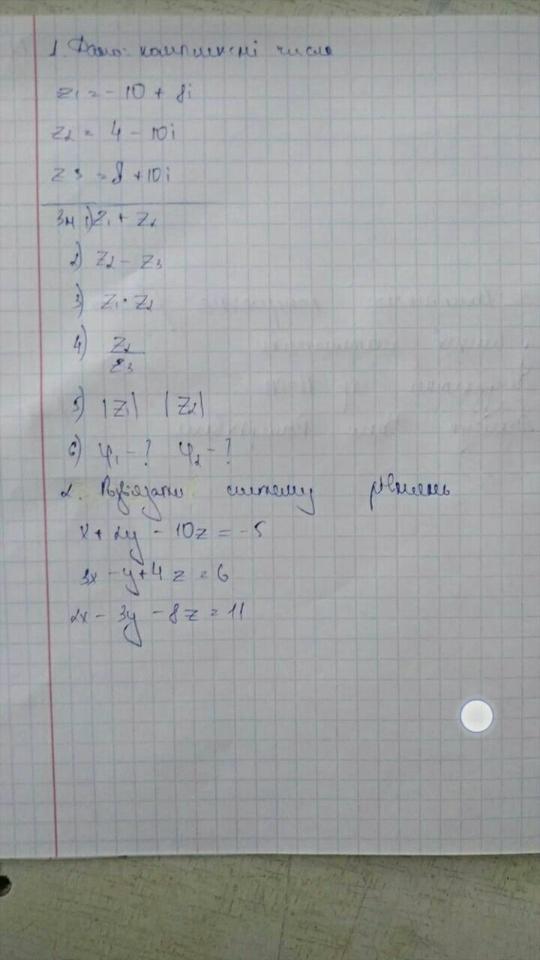 1. Дано: комплексні числа
z1 = - 10 + 8i
z2 = 4 - 10i
z3 = 8 + 10i
Зн 1) z1 + z2
2) z2 - z3
3) z1 · z2
4) z2/z3
5) |z1| |z2|
6) φ1 - ? φ2 - ?
2. Розв'язати систему рівнянь
x + 2y - 10z = -5
3x - y + 4z = 6
2x - 3y - 8z = 11